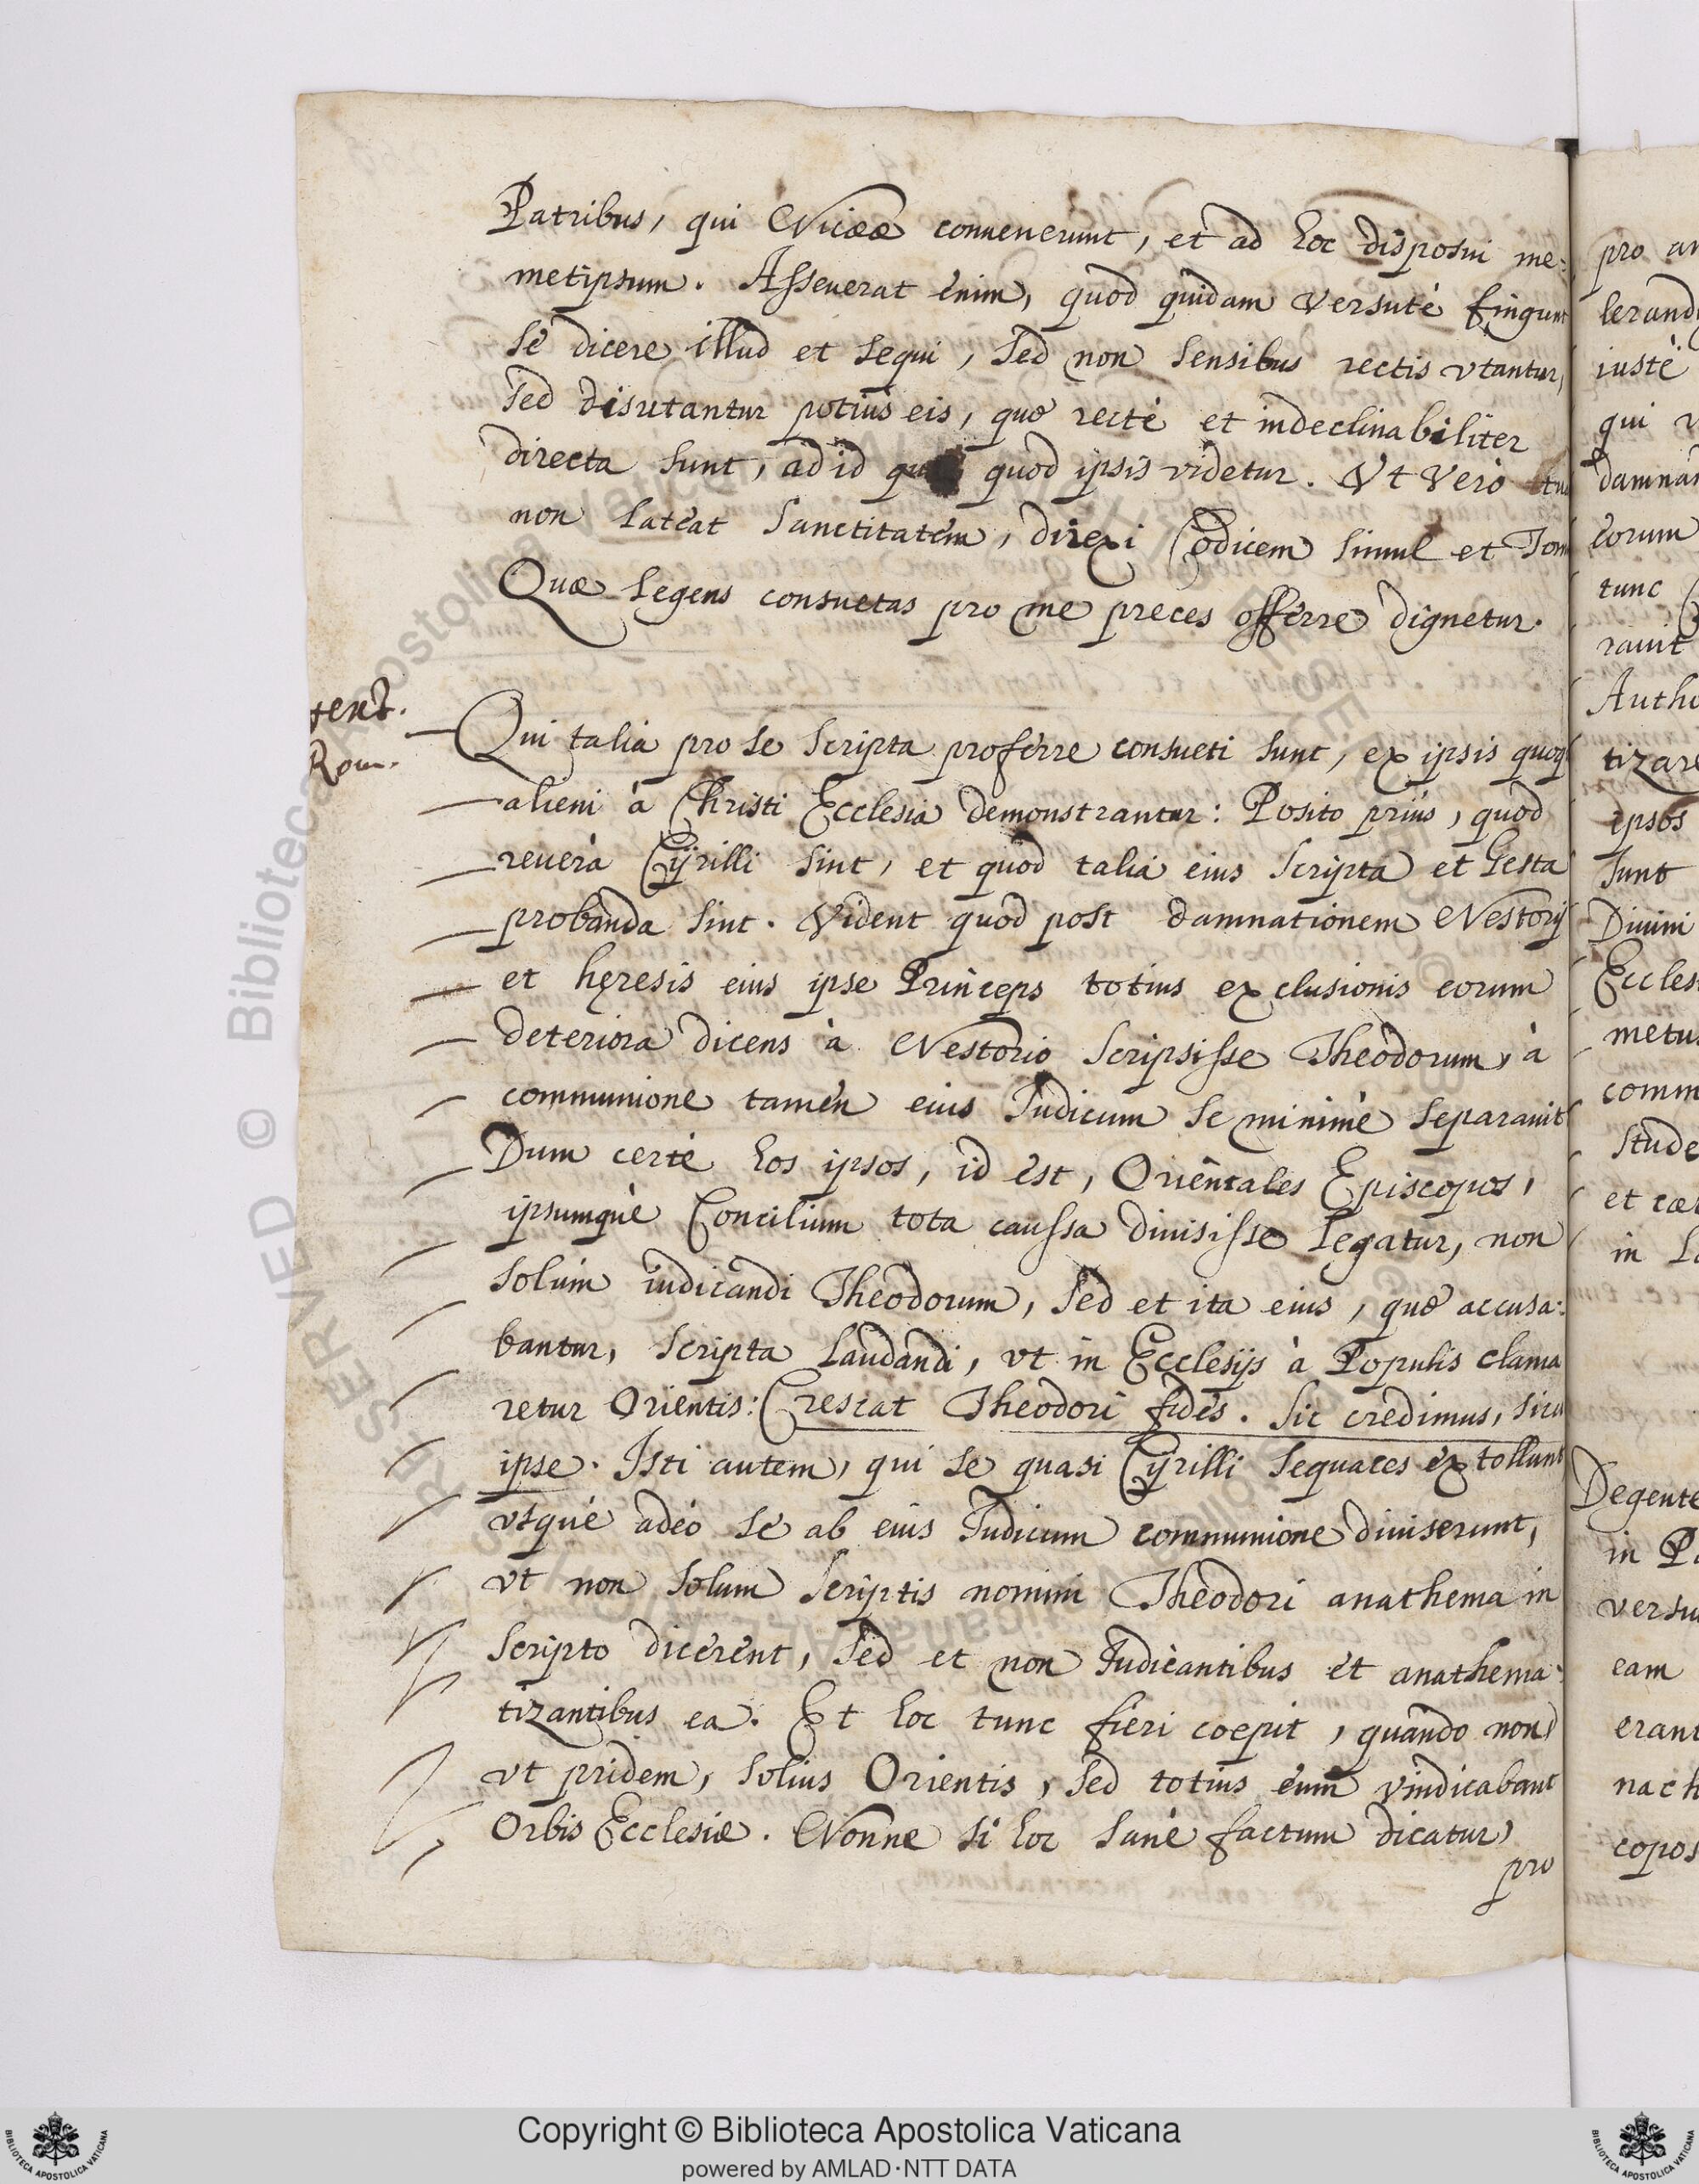 Patribus, qui Nicææ conuenerunt, et ad hoc disposui me:
metipsum. Asseuerat enim, quod quidam versutè fingunt
se dicere illud et sequi, sed non sensibus rectis vtantur,
sed disutantur potius eis, quæ rectè et indeclinabiliter
directa sunt, ad id quod ipsis videtur. Vt verò tua
non lateat sanctitatem, direxi Codicem simul et Tom
Quæ legens consuetas pro me preces offerre dignetur.
Rom.
Qui talia pro se scripta proferre consueti sunt, ex ipsis quoq
alieni à Christi Ecclesia demonstrantur: Posito priùs, quod
reuerà Cyrilli sint, et quod talia eius scripta et gesta
probanda sint. Vident quod post damnationem Nestorij
et hęresis eius ipse Princeps totius exclusionis eorum
deteriora dicens à Nestorio scripsisse Theodorum, à
communione tamen eius Iudicum se minimè separauit
Dum certè hos ipsos, id est, Orientales Episcopos,
ipsumquè Concilium tota caussa diuisisse legatur, non
solùm iudicandi Theodorum, sed et ita eius, quæ accusa:
bantur, scripta laudandi, vt in Ecclesijs à Populis clama
retur Orientis: Crescat Theodori fides. Sic credimus, sicu
ipse. Isti autem, qui se quasi Cyrilli sequaces extollunt
vsquè adeò se ab eius Iudicum communione diuiserunt,
vt non solum scriptis nomini Theodori anathema in
scripto dicerent, sed et non Iudicantibus et anathema:
tizantibus ea. Et hoc tunc fieri coepit, quando non
vt pridem, solius Orientis, sed totius eum vindicabant
Orbis Ecclesiæ. Nonne si hoc sanè factum dicatur,
pro
pro an
lerand
iustè
qui v
damnan
eorum
tunc
rauit
Autho
tizare
ipsos
sunt
Diuini
Eccles
metus
comm
stude
et cæt
in
Degente
in Pa
versu
eam
erant
nach
copos
RESERVED © Biblioteca Apostolica Vaticana
Copyright © Biblioteca Apostolica Vaticana
powered by AMLAD·NTT DATA
BIBLIOTECA APOSTOLICA VATICANA
BIBLIOTECA APOSTOLICA VATICANA